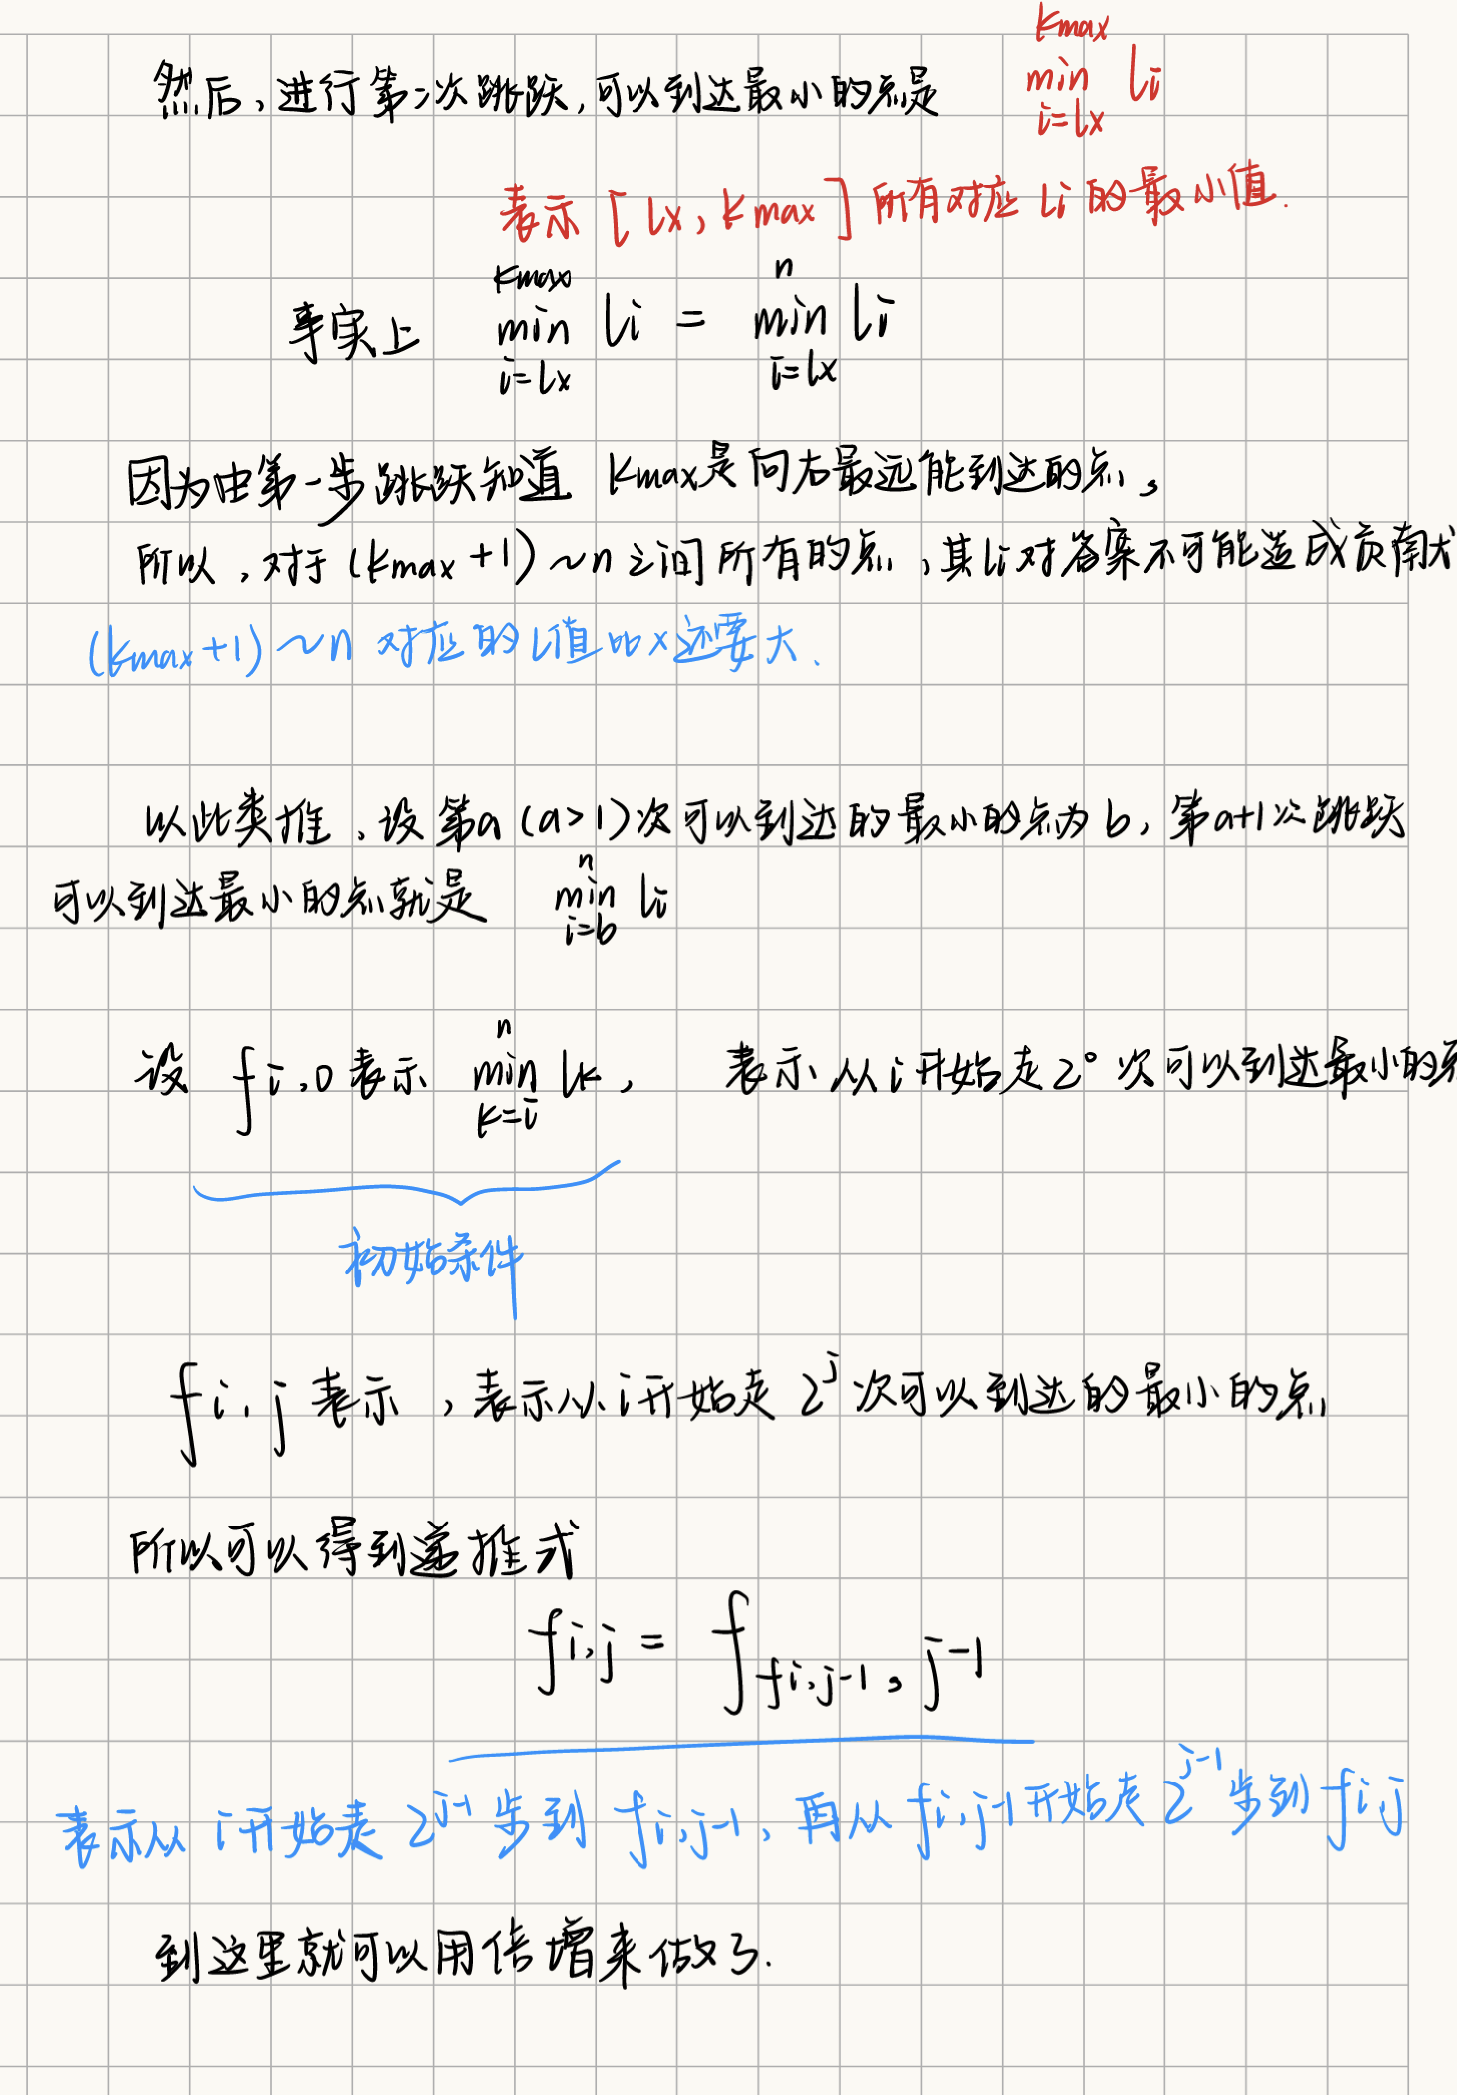 然后,进行第二次跳跃,可以到达最小的点是 $\min_{i=l_x}^{k_{max}} l_i$
表示 [lx, kmax] 所有对应 li 的最小值.
事实上 $\min_{i=l_x}^{k_{max}} l_i = \min_{i=l_x}^{n} l_i$
因为由第一步跳跃知道 kmax是向右最远能到达的点,
所以,对于 (kmax+1)~n 之间所有的点,其li对答案不可能造成贡献
(kmax+1)~n 对应的L值比x还要大.
以此类推、设第a(a>1)次可以到达的最小的点为b,第a+1次跳跃
可以到达最小的点就是 $\min_{i=b}^{n} l_i$
设 $f_{i,0}$ 表示 $\min_{k=i}^{n} l_k$, 表示从i开始走 $2^0$ 次可以到达最小的点
初始条件
$f_{i,j}$ 表示,表示从i开始走 $2^j$ 次可以到达的最小的点
所以可以得到递推式
$f_{i,j} = f_{f_{i,j-1},j-1}$
表示从i开始走 $2^{j-1}$ 步到 $f_{i,j-1}$,再从 $f_{i,j-1}$ 开始走 $2^{j-1}$ 步到 $f_{i,j}$
到这里就可以用倍增来做了.